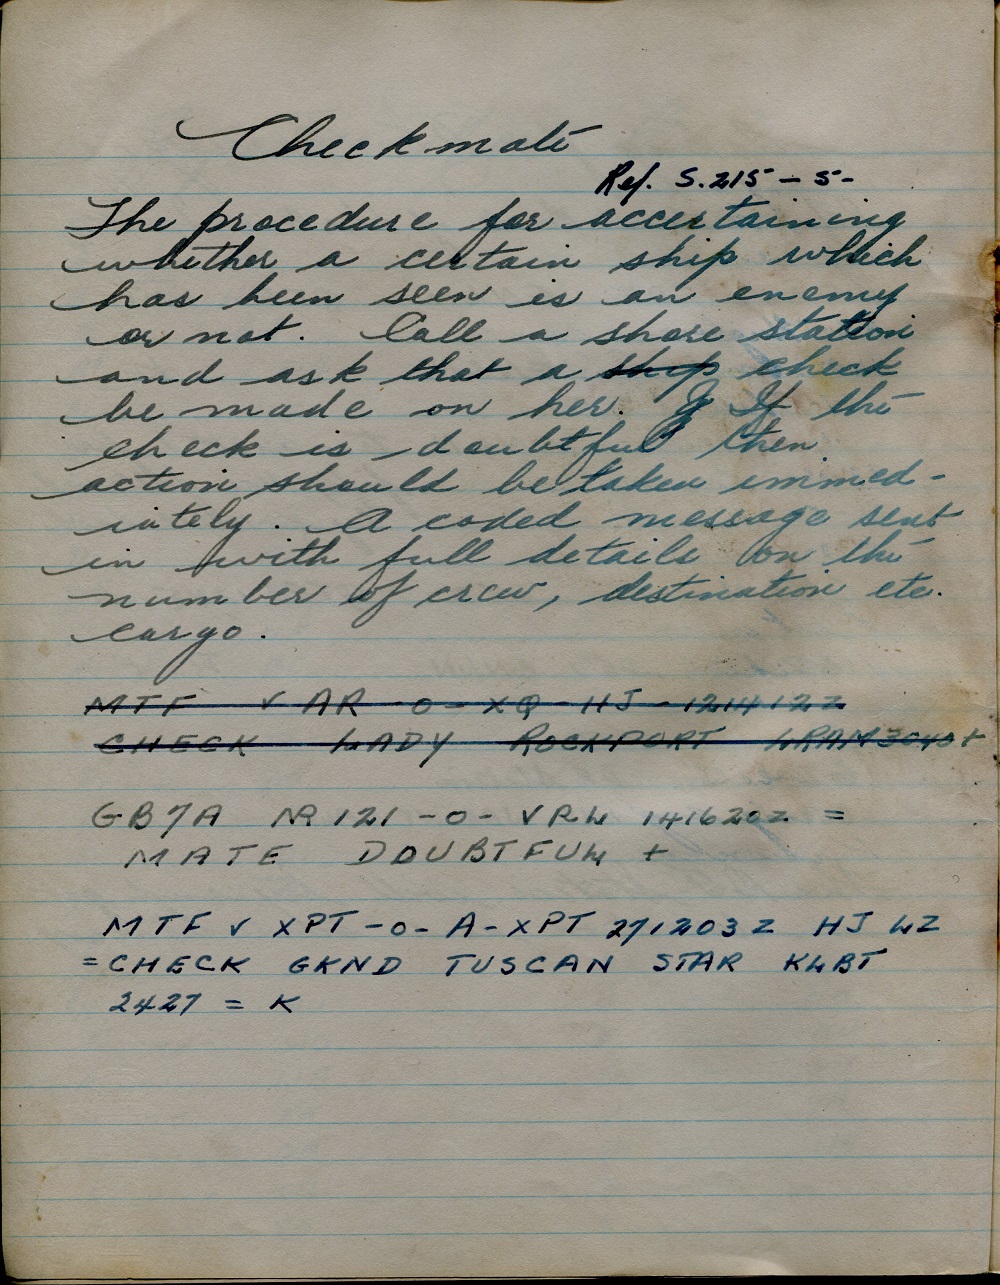 Checkmate
Ref. S.215 - 5-
The procedure for accertaining
whether a certain ship which
has been seen is an enemy
or not. Call a shore station
and ask that a ship check
be made on her. If the
check is doubtful then
action should be taken immed-
iately. A coded message sent
in with full details on the
number of crew, destination etc.
cargo.
MTF V AR -O- XQ - HJ - 121412Z
CHECK LADY ROCKPORT LRAM 3040 +
GB7A NR 121 -O- VRL 141620Z =
MATE DOUBTFUL +
MTF V XPT -O- A-XPT 271203Z HJ LZ
=CHECK GKND TUSCAN STAR KLBT
2427 = K